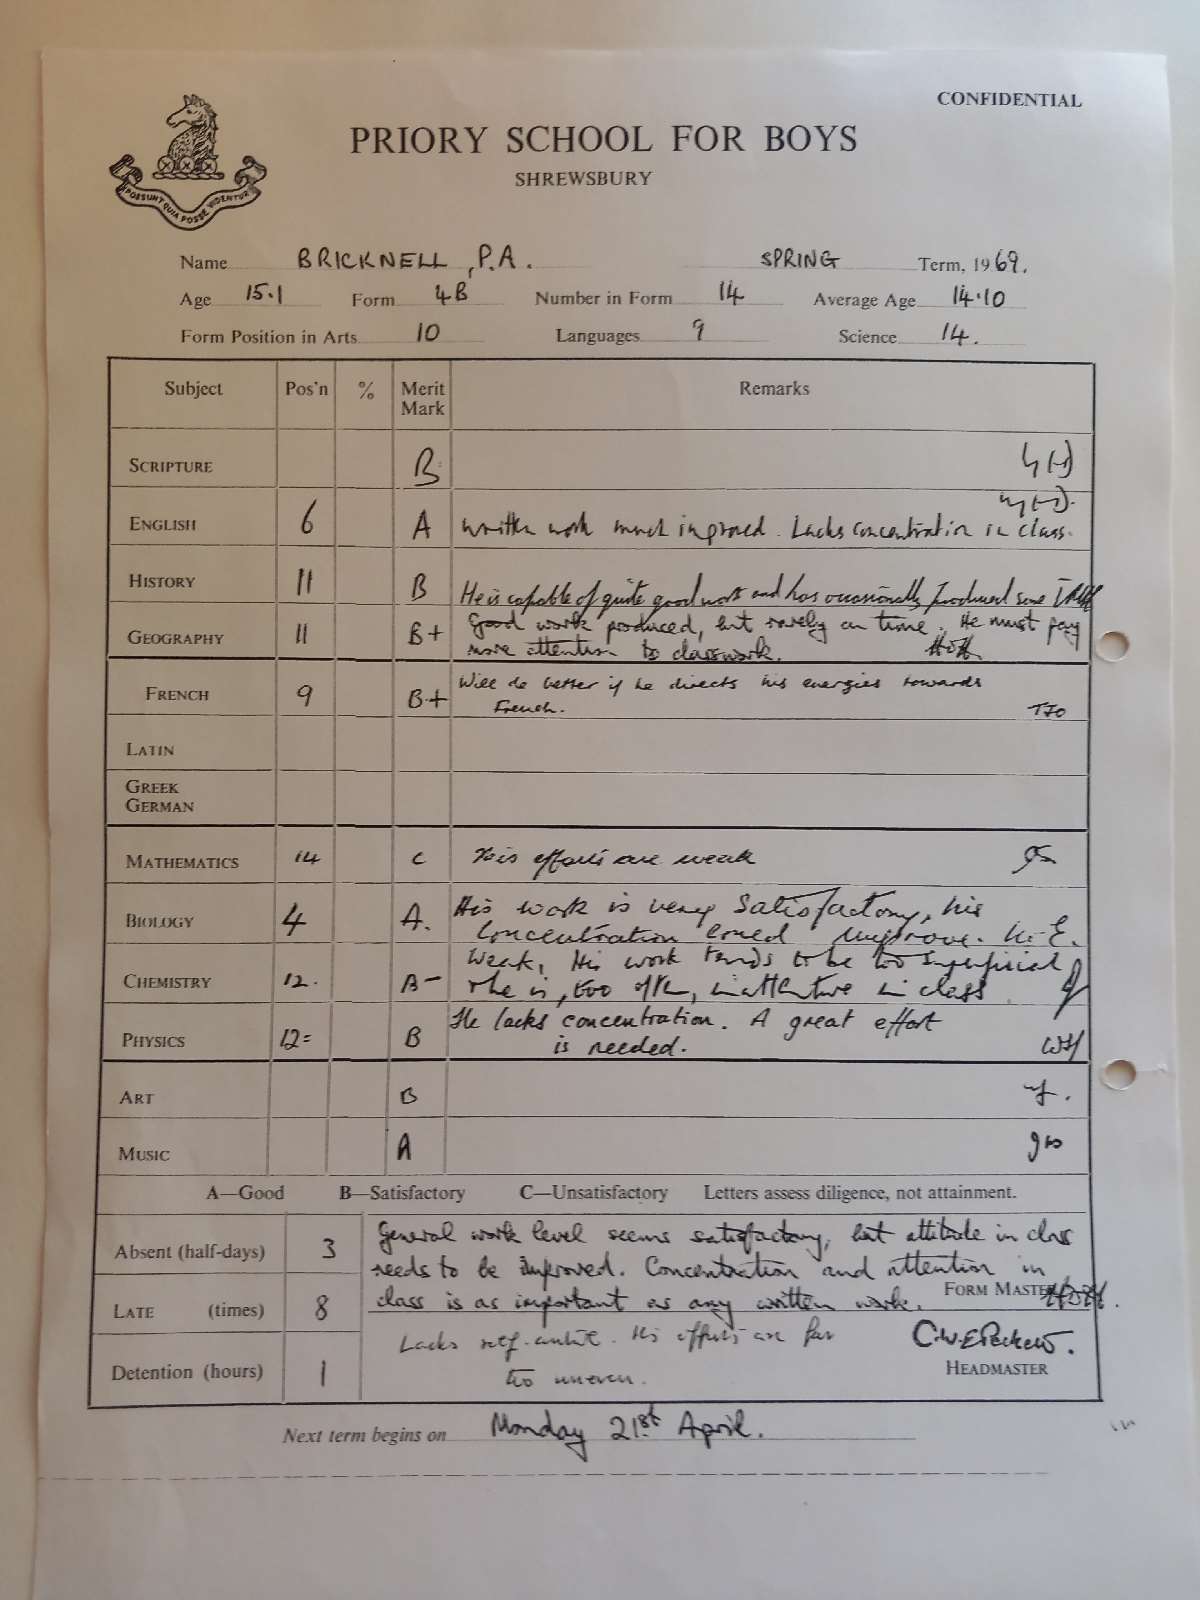 CONFIDENTIAL
PRIORY SCHOOL FOR BOYS
SHREWSBURY
POSSUNT QUIA POSSE VIDENTUR
Name BRICKNELL, P.A. SPRING Term, 1969.
Age 15.1 Form 4B Number in Form 14 Average Age 14.10
Form Position in Arts 10 Languages 9 Science 14.
Subject Pos'n % Merit Mark Remarks
SCRIPTURE B
ENGLISH 6 A Written work much improved. Lacks concentration in class.
HISTORY 11 B He is capable of quite good work and has occasionally produced some
GEOGRAPHY 11 B+ Good work produced, but rarely on time. He must pay
more attention to classwork.
FRENCH 9 B+ Will do better if he directs his energies towards
French. TJO
LATIN
GREEK
GERMAN
MATHEMATICS 14 C His efforts are weak
BIOLOGY 4 A. His work is very satisfactory, his
concentration could improve.
CHEMISTRY 12. B- Weak, His work tends to be too superficial
& he is, too often, inattentive in class
PHYSICS 12= B He lacks concentration. A great effort
is needed.
ART B
MUSIC A
A—Good B—Satisfactory C—Unsatisfactory Letters assess diligence, not attainment.
Absent (half-days) 3 General work level seems satisfactory, but attitude in class
needs to be improved. Concentration and attention in
LATE (times) 8 class is as important as any written work. FORM MASTER
Lacks self-control. His efforts are far
too uneven.
Detention (hours) 1 HEADMASTER
Next term begins on Monday 21st April.